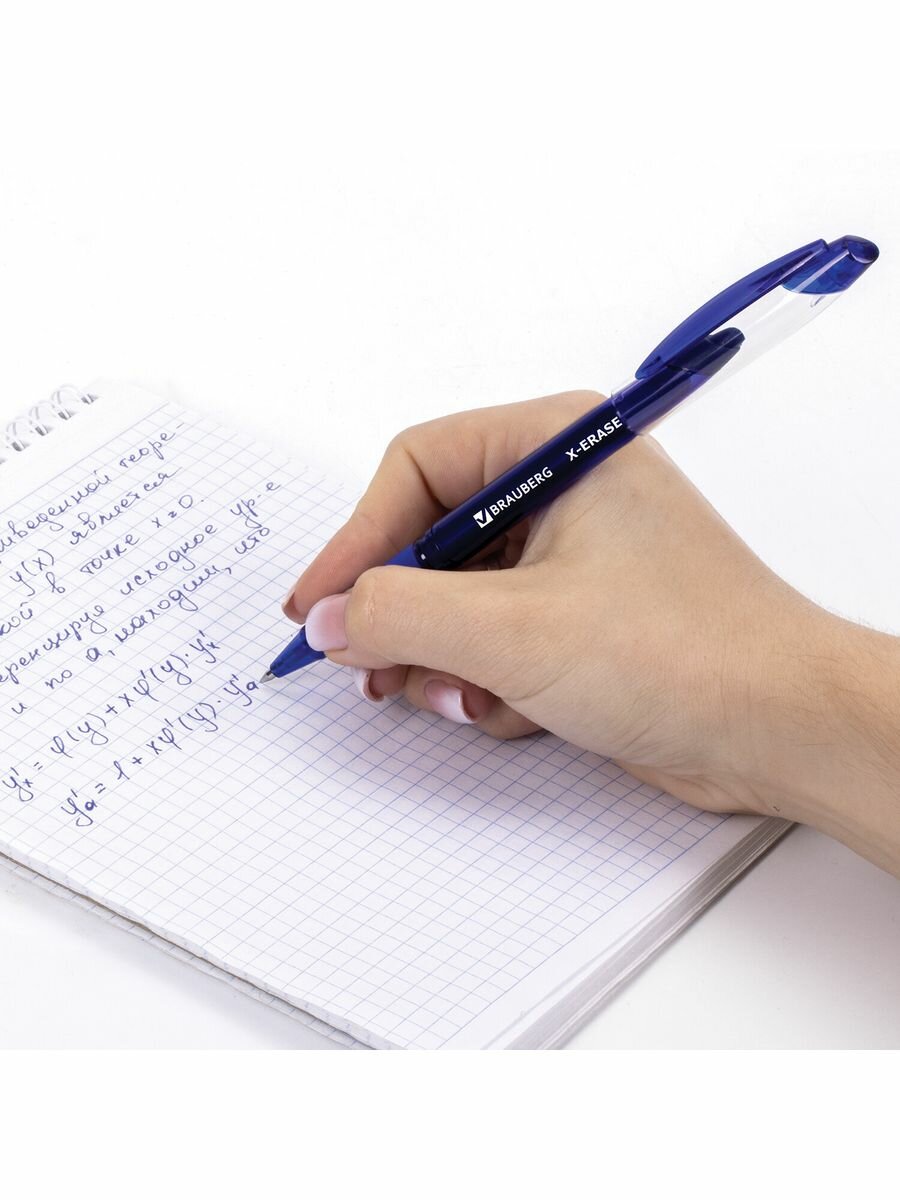 иведенной теоре-
y(x) является
кой в точке x=0.
еренцируя исходное ур-е
и по a, находим, что
y'x = φ(y)+xφ'(y)·y'x
y'a = 1+xφ'(y)·y'a
BRAUBERG X-ERASE